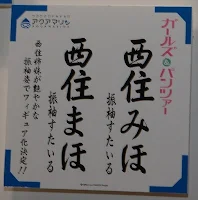 ガールズ&パンツァー
西住みほ
振袖すたいる
西住まほ
振袖すたいる
アクアマリン
西住姉妹が艶やかな
振袖姿でフィギュア化決定!!